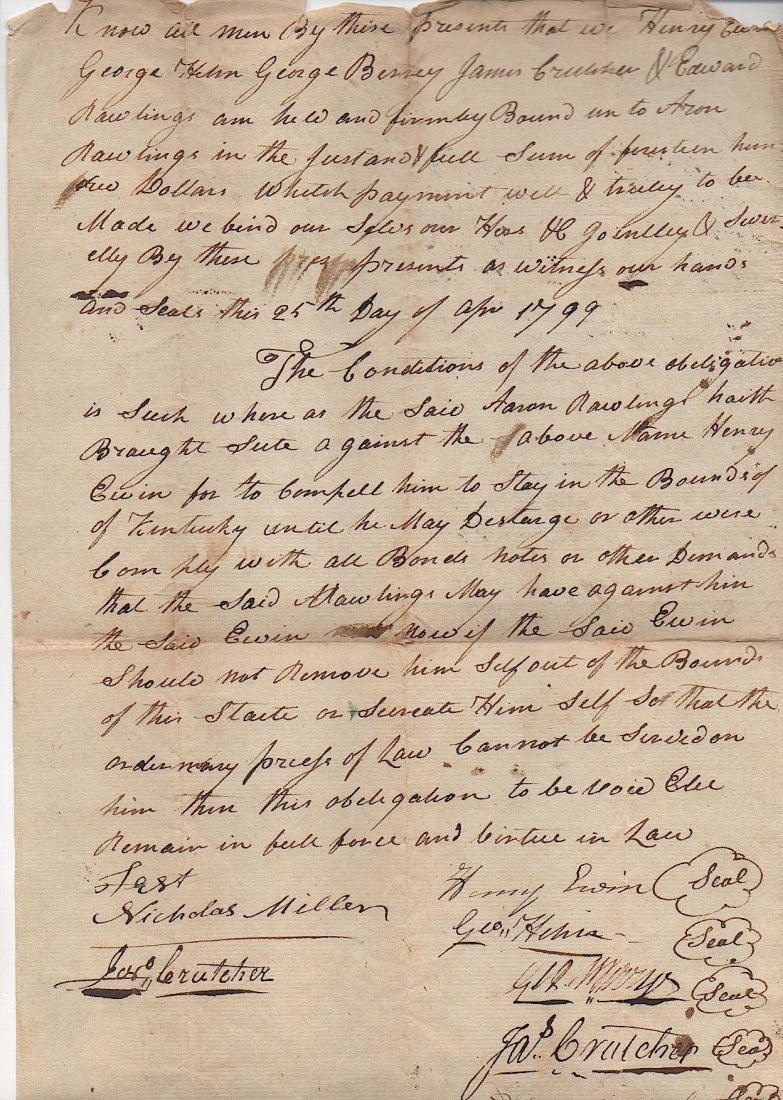 Know all men By these presents that we Henry Ewin
George Helm George Berrey James Crutcher & Edward
Rawlings am held and firmley Bound un to Aron
Rawlings in the Just and full Sum of fourteen hun
dred Dollars Whitch payment well & trulley to be
Made we bind our Selvs our Hers &C Joyntley & Sever
elly By these presents as witness our hands
and Seals this 25th Day of Apr 1799
The Conditions of the above obligatio
is Such where as the Said Aaron Rawlings haith
Braught Sute against the above Name Henry
Ewin for to Compell him to Stay in the Bounds of
of Kentucky until he May Destarge or other wise
Com ply with all Bonds notes or other Demands
that the Said ARawlings May have against him
the Said Ewin Now if the Said Ewin
Should not Remove him Self out of the Bounds
of this Staete or Secreate Him Self So that the
ordernary press of Law Cannot be Served on
him then this obelegation to be void Else
Remain in full force and Virtue in Law
Test
Henry Ewin Seal
Nicholas Miller
Geo,, Helm Seal
Jas,, Crutcher
Geo Seal
Jas. Crutcher Seal